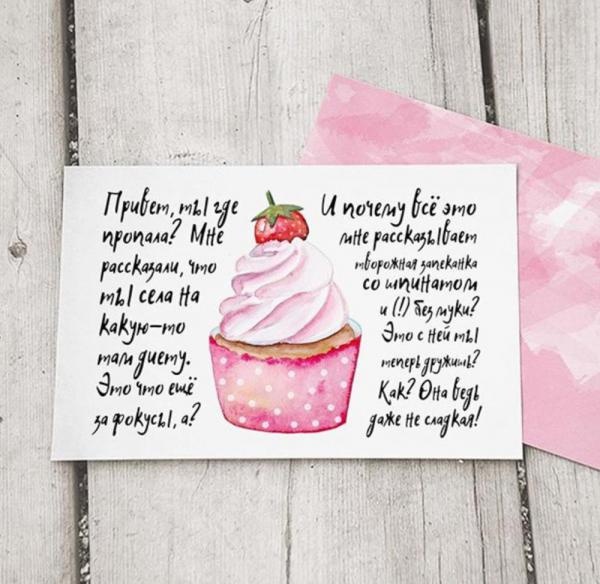 Привет, ты где
пропала? Мне
рассказали, что
ты села на
какую-то
там диету.
Это что ещё
за фокусы, а?
И почему всё это
мне рассказывает
творожная запеканка
со шпинатом
и (!) без муки?
Это с ней ты
теперь дружишь?
Как? Она ведь
даже не сладкая!